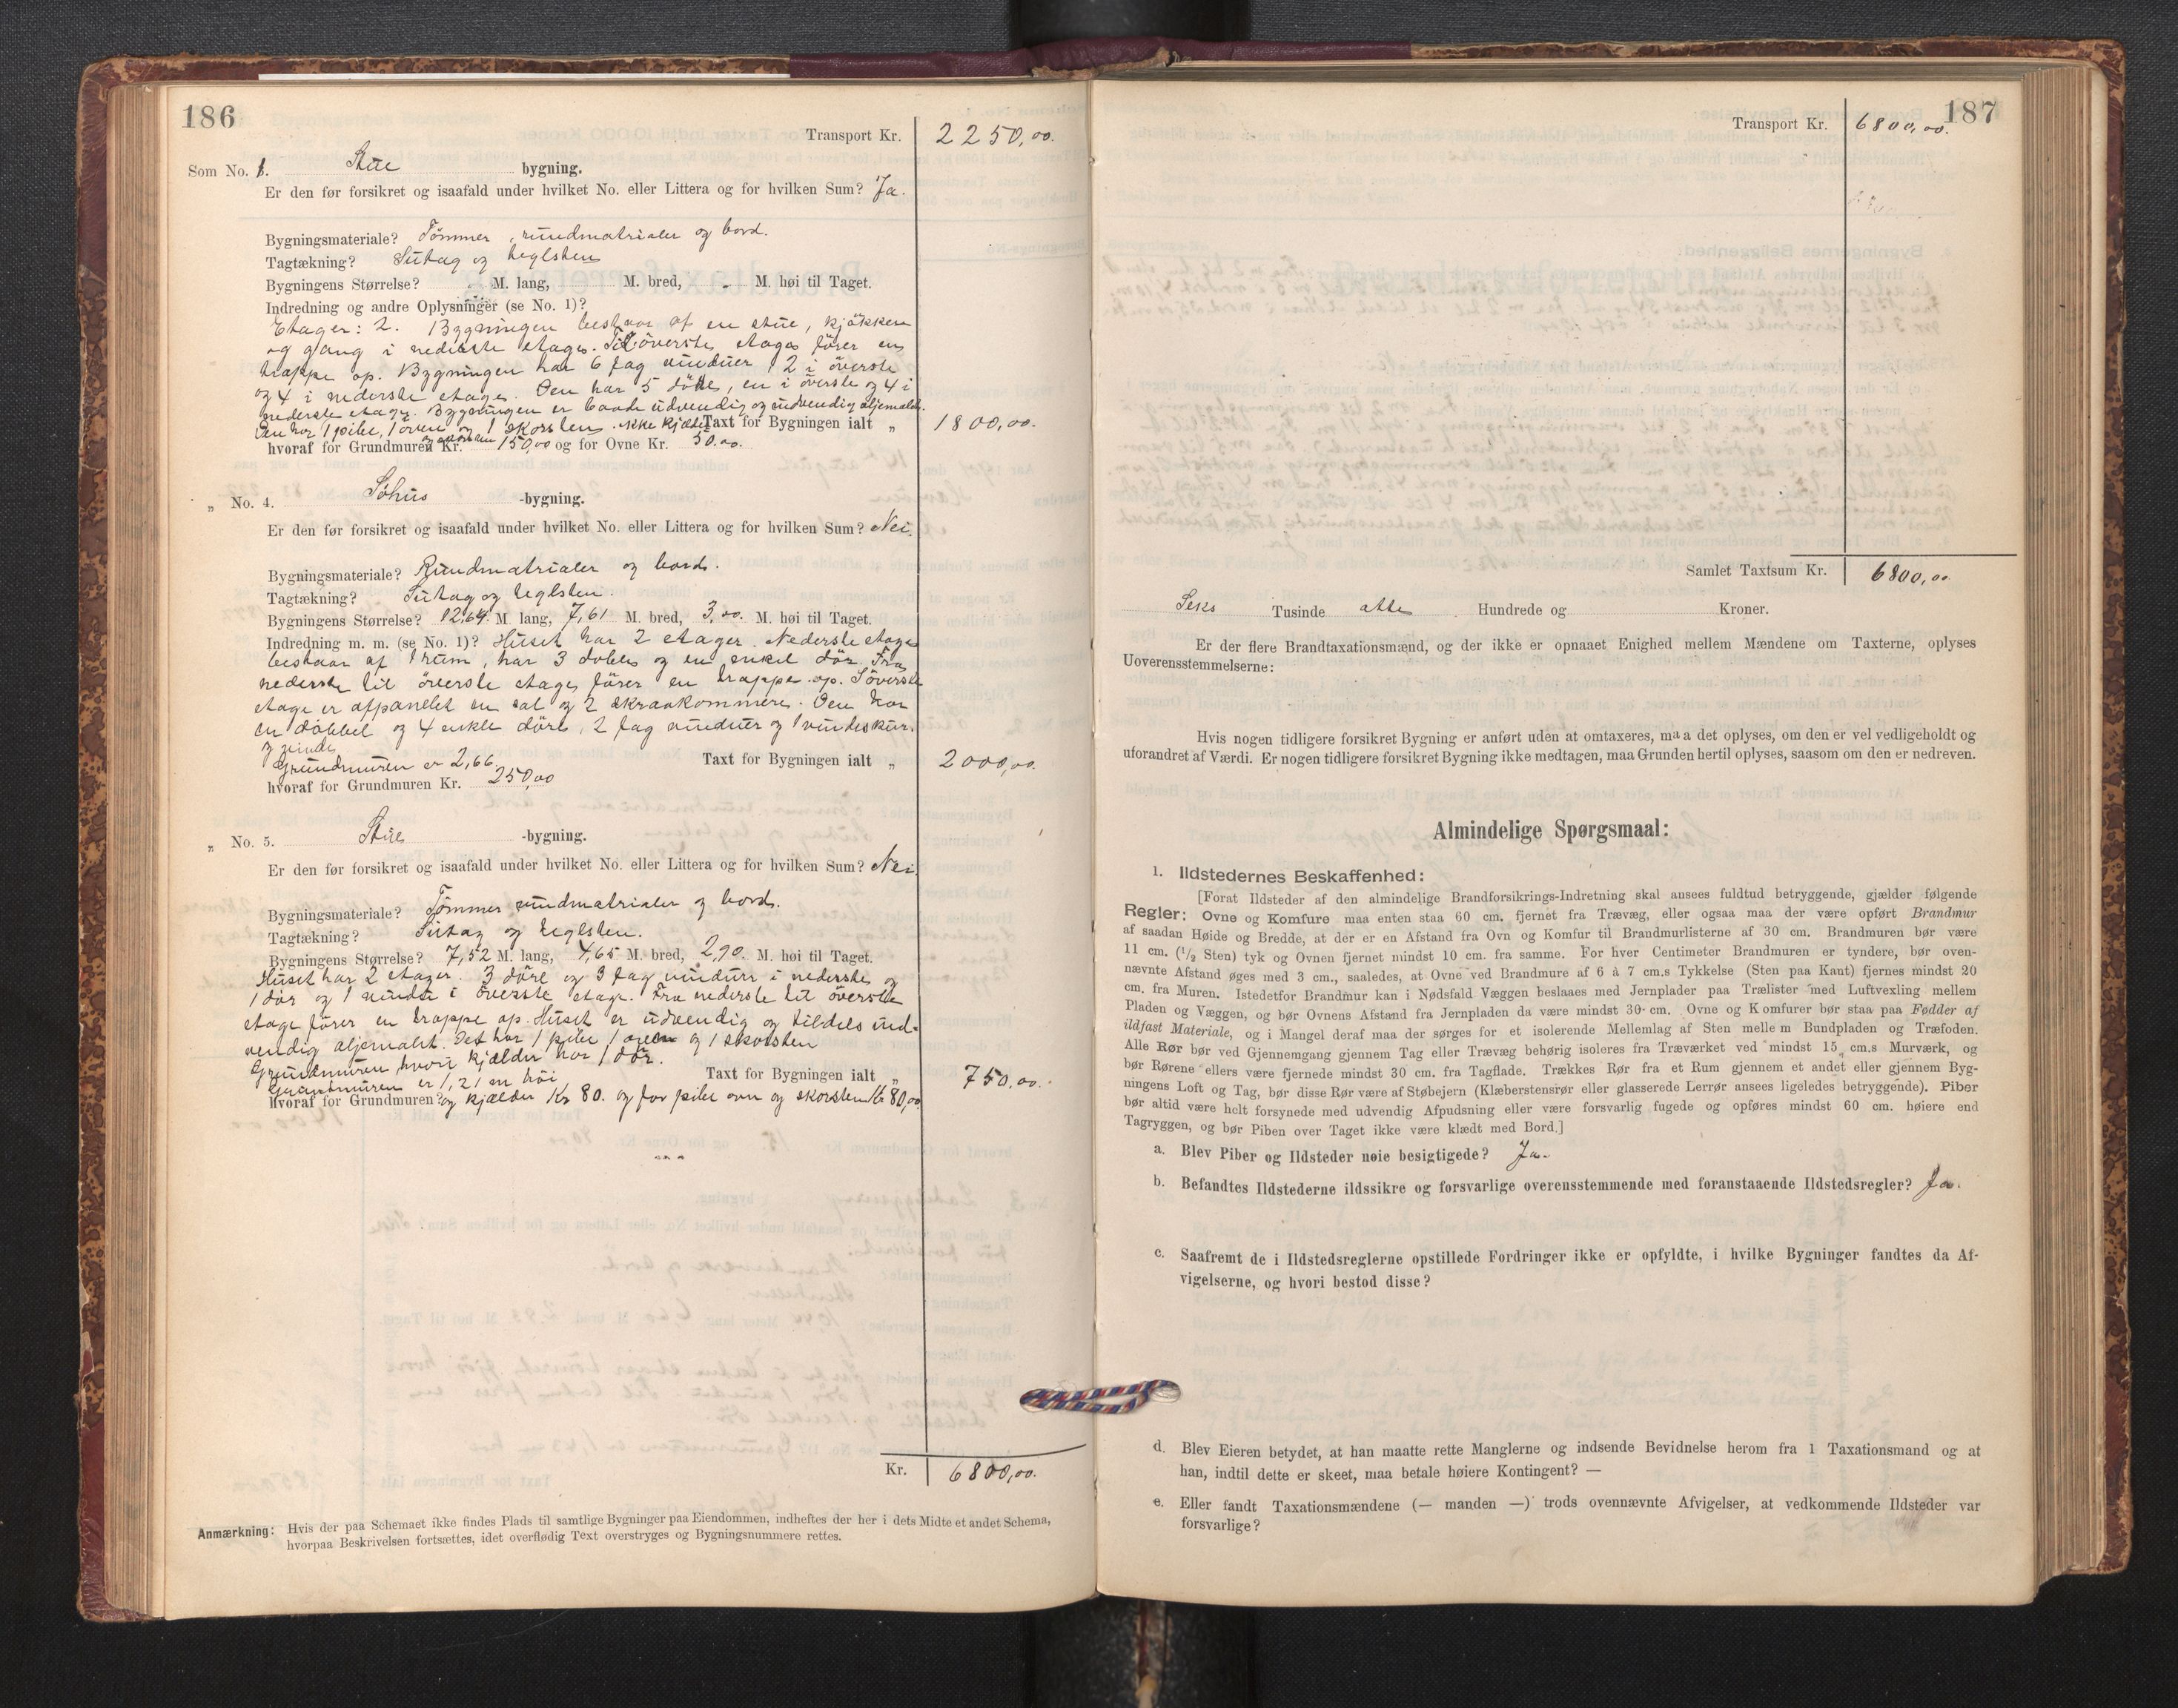 186
Transport Kr. 2250,00.
Som No. 1. Stue bygning.
Er den før forsikret og isaafald under hvilket No. eller Littera og for hvilken Sum? Ja.
Bygningsmateriale? Tömmer, rundmatrialer og bord.
Tagtækning? Sutag og teglsten
Bygningens Størrelse? M. lang, M. bred, M. høi til Taget.
Indredning og andre Oplysninger (se No. 1)?
Etager: 2. Bygningen bestaar af en stue, kjökken
og gang i nederste etage. Til överste etage förer en
trappe op. Bygningen har 6 fag vinduer, 2 i överste
og 4 i nederste etage. Den har 5 döre, en i överste og 4 i
nederste etage. Bygningen er baade udvendig og indvendig oljemalt.
Den har 1 pibe, 1 oven og 1 skorsten. ikke kjælder Taxt for Bygningen ialt „ 1800,00.
hvoraf for Grundmuren og skorsten Kr. 150,00 og for Ovne Kr. 50.00.
„ No. 4. Söhus -bygning.
Er den før forsikret og isaafald under hvilket No. eller Littera og for hvilken Sum? Nei.
Bygningsmateriale? Rundmatrialer og bord.
Tagtækning? Sutag og teglsten.
Bygningens Størrelse? 12,64 M. lang, 7,61 M. bred, 3,00. M. høi til Taget.
Indredning m. m. (se No. 1)? Huset har 2 etager. Nederste etage
bestaar af 1 rum, har 3 doble og en enkel dör. Fra
nederste til överste etage förer en trappe op. I överste
etage er afpanelet en sal og 2 skraakommere. Den har
en dobbel og 4 enkle döre, 2 fag vinduer og 1 vindeskur.
og vinde
Grundmuren er 2,66. Taxt for Bygningen ialt „ 2000,00.
hvoraf for Grundmuren Kr. 250,00
„ No. 5. Stue -bygning.
Er den før forsikret og isaafald under hvilket No. eller Littera og for hvilken Sum? Nei.
Bygningsmateriale? Tömmer rundmatrialer og bord.
Tagtækning? Sutag og teglsten.
Bygningens Størrelse? 7,52 M. lang, 4,65 M. bred, 2,90. M. høi til Taget.
Huset har 2 etager. 3 döre og 3 fag vinduer i nederste og
1 dör og 1 vindu i överste etage. Fra nederste til överste
etage förer en trappe op. Huset er udvendig og tildels ind-
vendig oljemalt. Det har 1 pibe 1 oven og 1 skorsten
Grundmuren, hvori kjælder har 1 dör.
Grundmuren er 1,21 m höi Taxt for Bygningen ialt „ 750,00.
hvoraf for Grundmuren og kjælder Kr 80. og for pibe ovn og skorsten Kr 80,00
Kr. 6800,00.
Anmærkning: Hvis der paa Schemaet ikke findes Plads til samtlige Bygninger paa Eiendommen, indheftes der her i dets Midte et andet Schema,
hvorpaa Beskrivelsen fortsættes, idet overflødig Text overstryges og Bygningsnummere rettes.
187
Transport Kr. 6800,00.
Samlet Taxtsum Kr. 6800,00
Seks Tusinde atte Hundrede og Kroner.
Er der flere Brandtaxationsmænd, og der ikke er opnaaet Enighed mellem Mændene om Taxterne, oplyses
Uoverensstemmelserne:
Hvis nogen tidligere forsikret Bygning er anført uden at omtaxeres, maa det oplyses, om den er vel vedligeholdt og
uforandret af Værdi. Er nogen tidligere forsikret Bygning ikke medtagen, maa Grunden hertil oplyses, saasom om den er nedreven.
Almindelige Spørgsmaal:
1. Ildstedernes Beskaffenhed:
[Forat Ildsteder af den almindelige Brandforsikrings-Indretning skal ansees fuldtud betryggende, gjælder følgende
Regler: Ovne og Komfure maa enten staa 60 cm. fjernet fra Trævæg, eller ogsaa maa der være opført Brandmur
af saadan Høide og Bredde, at der er en Afstand fra Ovn og Komfur til Brandmurlisterne af 30 cm. Brandmuren bør være
11 cm. (1/2 Sten) tyk og Ovnen fjernet mindst 10 cm. fra samme. For hver Centimeter Brandmuren er tyndere, bør oven-
nævnte Afstand øges med 3 cm., saaledes, at Ovne ved Brandmure af 6 à 7 cm.s Tykkelse (Sten paa Kant) fjernes mindst 20
cm. fra Muren. Istedetfor Brandmur kan i Nødsfald Væggen beslaaes med Jernplader paa Trælister med Luftvexling mellem
Pladen og Væggen, og bør Ovnens Afstand fra Jernpladen da være mindst 30 cm. Ovne og Komfurer bør staa paa Fødder af
ildfast Materiale, og i Mangel deraf maa der sørges for et isolerende Mellemlag af Sten mellem Bundpladen og Træfoden.
Alle Rør bør ved Gjennemgang gjennem Tag eller Trævæg behørig isoleres fra Træværket ved mindst 15 cm.s Murværk, og
bør Rørene ellers være fjernede mindst 30 cm. fra Tagflade. Trækkes Rør fra et Rum gjennem et andet eller gjennem Byg-
ningens Loft og Tag, bør disse Rør være af Støbejern (Klæberstensrør eller glasserede Lerrør ansees ligeledes betryggende). Piber
bør altid være helt forsynede med udvendig Afpudsning eller være forsvarlig fugede og opføres mindst 60 cm. høiere end
Tagryggen, og bør Piben over Taget ikke være klædt med Bord.]
a. Blev Piber og Ildsteder nøie besigtigede? Ja.
b. Befandtes Ildstederne ildssikre og forsvarlige overensstemmende med foranstaaende Ildstedsregler? Ja.
c. Saafremt de i Ildstedsreglerne opstillede Fordringer ikke er opfyldte, i hvilke Bygninger fandtes da Af-
vigelserne, og hvori bestod disse?
d. Blev Eieren betydet, at han maatte rette Manglerne og indsende Bevidnelse herom fra 1 Taxationsmand og at
han, indtil dette er skeet, maa betale høiere Kontingent? —
e. Eller fandt Taxationsmændene (— manden —) trods ovennævnte Afvigelser, at vedkommende Ildsteder var
forsvarlige?